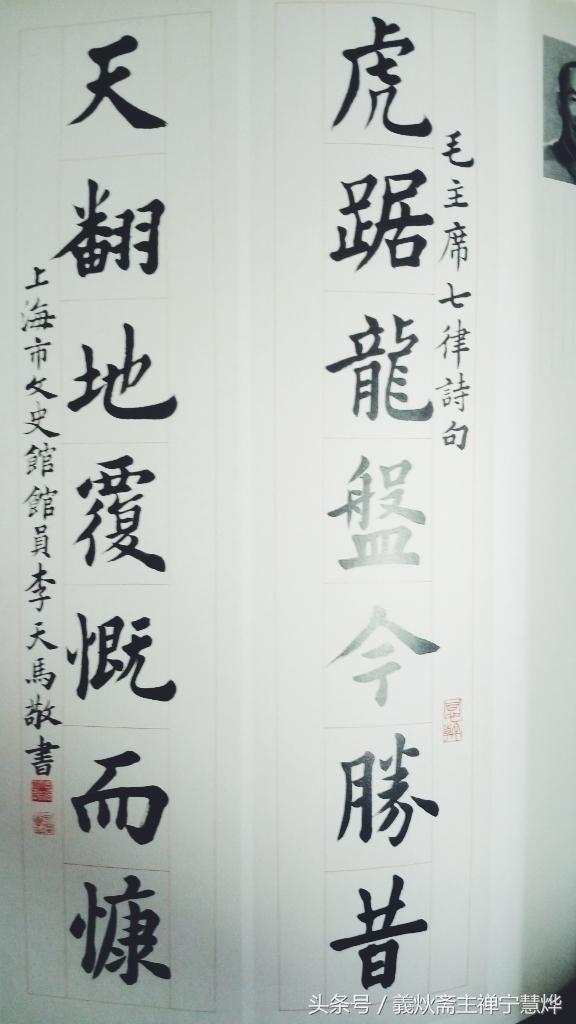 毛主席七律詩句
虎踞龍盤今勝昔
天翻地覆慨而慷
上海市文史館館員李天馬敬書
头条号／義炏斋主禅宁慧烨